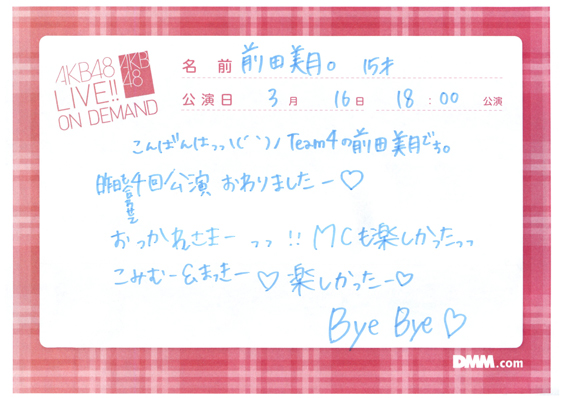 AKB48
LIVE!!
ON DEMAND
AKB
48
名 前 前田美月。 15才
公演日 3月 16日 18:00 公演
こんばんはっっ\(´`)ノ Team4の前田美月です。
昨日も合わせて4回公演 おわりましたー♡
おっかれさまー っっ !! MCも楽しかったっっ
こみむー&まっきー ♡ 楽しかったー♡
Bye Bye♡
DMM.com